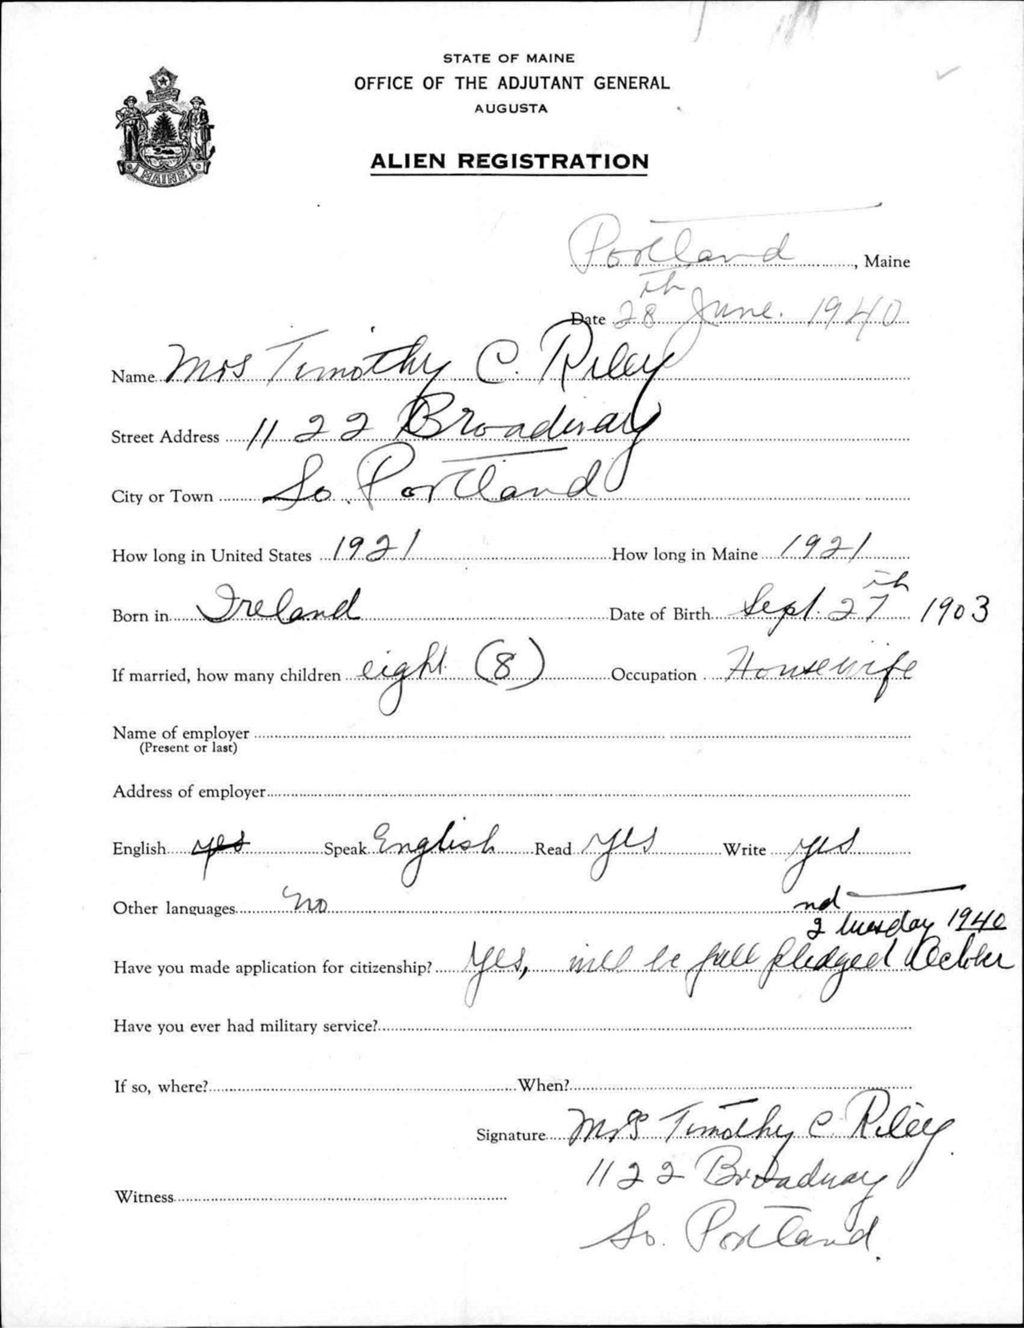 STATE OF MAINE
OFFICE OF THE ADJUTANT GENERAL
AUGUSTA
MAINE
ALIEN REGISTRATION
Portland, Maine
Date 28th June. 1940
Name Mrs Timothy C. Riley
Street Address 1122 Broadway
City or Town So. Portland
How long in United States 1921 How long in Maine 1921
Born in Ireland Date of Birth Sept. 27th 1903
If married, how many children eight (8) Occupation Housewife
Name of employer
(Present or last)
Address of employer
English yes Speak English Read yes Write yes
Other languages no
2nd tuesday 1940
Have you made application for citizenship? Yes, will be full pledged October
Have you ever had military service?
If so, where? When?
Signature Mrs Timothy C. Riley
1122 Broadway
Witness
So. Portland.